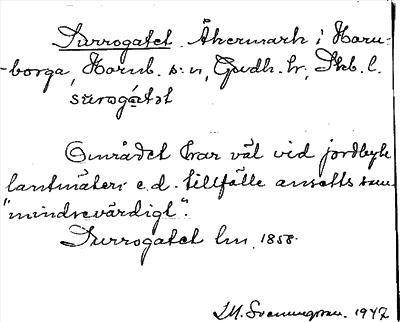 Surrogatet. Åkermark i Horn-
borga, Hornb. s:n, Gudh. hr, Skb. l.
surogátət
Området har väl vid jordbyte
lantmäteri e.d. tillfälle ansetts som
"mindrevärdigt".
Surrogatet lm. 1858.
1947